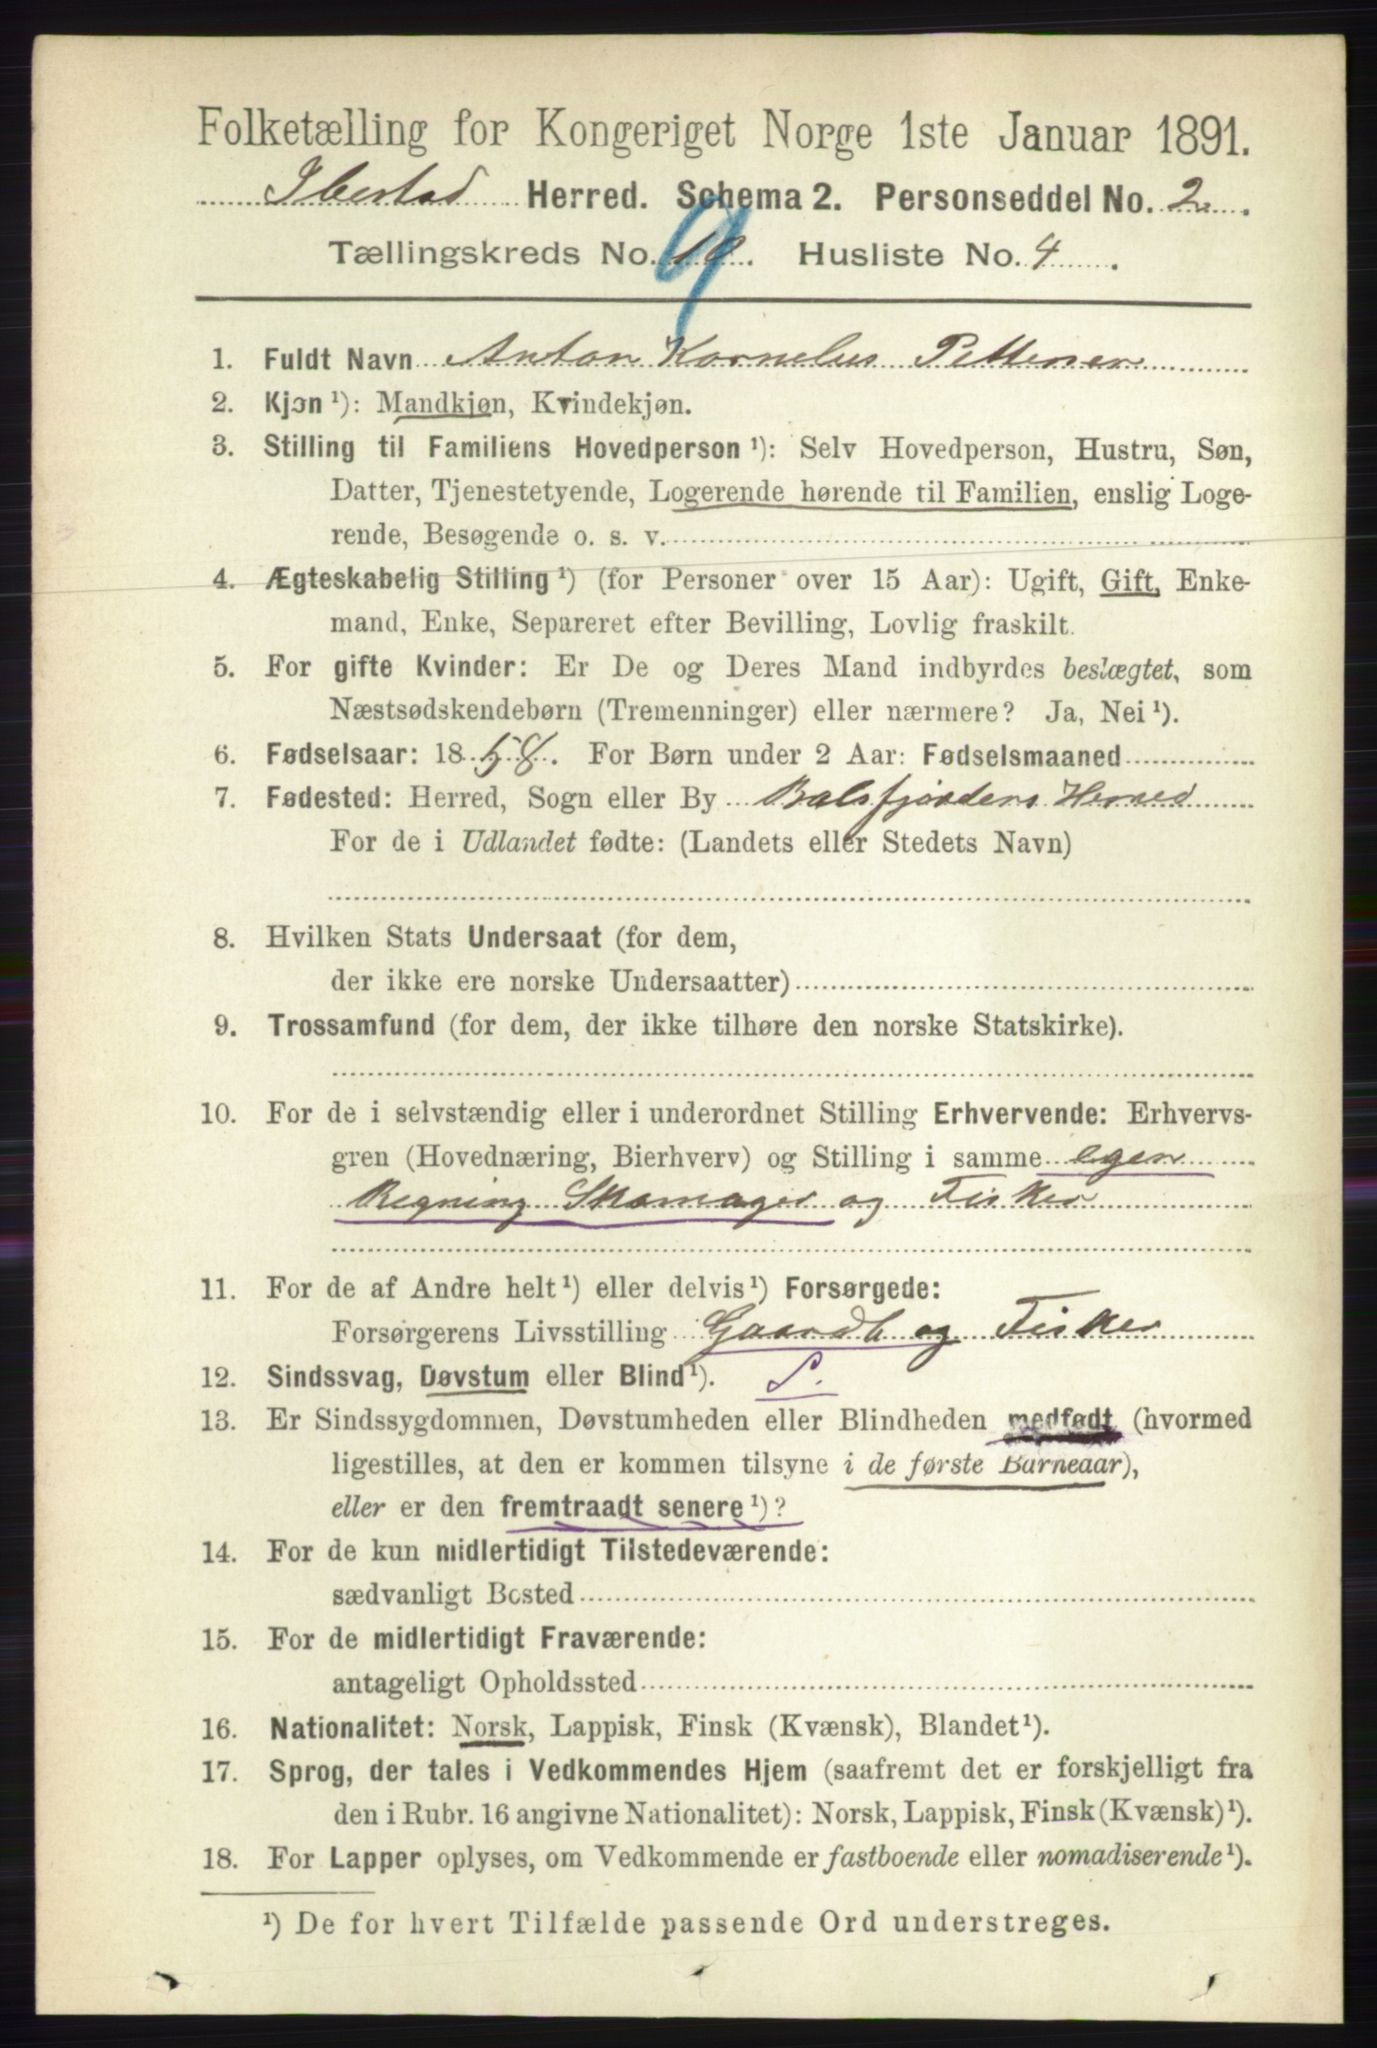 Folketælling for Kongeriget Norge 1ste Januar 1891.
Ibestad Herred. Schema 2. Personseddel No. 2.
Tællingskreds No. 10. Husliste No. 4.
9
1. Fuldt Navn Anton Kornelius
2. Kjøn ¹): Mandkjøn, Kvindekjøn.
3. Stilling til Familiens Hovedperson ¹): Selv Hovedperson, Hustru, Søn,
Datter, Tjenestetyende, Logerende hørende til Familien, enslig Loge-
rende, Besøgende o. s. v.
4. Ægteskabelig Stilling ¹) (for Personer over 15 Aar): Ugift, Gift, Enke-
mand, Enke, Separeret efter Bevilling, Lovlig fraskilt.
5. For gifte Kvinder: Er De og Deres Mand indbyrdes beslægtet, som
Næstsødskendebørn (Tremenninger) eller nærmere? Ja, Nei ¹).
6. Fødselsaar: 1858. For Børn under 2 Aar: Fødselsmaaned
7. Fødested: Herred, Sogn eller By Balsfjordens Herred
For de i Udlandet fødte: (Landets eller Stedets Navn)
8. Hvilken Stats Undersaat (for dem,
der ikke ere norske Undersaatter)
9. Trossamfund (for dem, der ikke tilhøre den norske Statskirke).
10. For de i selvstændig eller i underordnet Stilling Erhvervende: Erhvervs-
gren (Hovednæring, Bierhverv) og Stilling i samme egen
Regning Skomager og Fisker
11. For de af Andre helt ¹) eller delvis ¹) Forsørgede:
Forsørgerens Livsstilling Gaardb og Fisker
12. Sindssvag, Døvstum eller Blind ¹). S.
13. Er Sindssygdommen, Døvstumheden eller Blindheden medfødt (hvormed
ligestilles, at den er kommen tilsyne i de første Barneaar),
eller er den fremtraadt senere ¹)?
14. For de kun midlertidigt Tilstedeværende:
sædvanligt Bosted
15. For de midlertidigt Fraværende:
antageligt Opholdssted
16. Nationalitet: Norsk, Lappisk, Finsk (Kvænsk), Blandet ¹).
17. Sprog, der tales i Vedkommendes Hjem (saafremt det er forskjelligt fra
den i Rubr. 16 angivne Nationalitet): Norsk, Lappisk, Finsk (Kvænsk) ¹).
18. For Lapper oplyses, om Vedkommende er fastboende eller nomadiserende ¹).
¹) De for hvert Tilfælde passende Ord understreges.